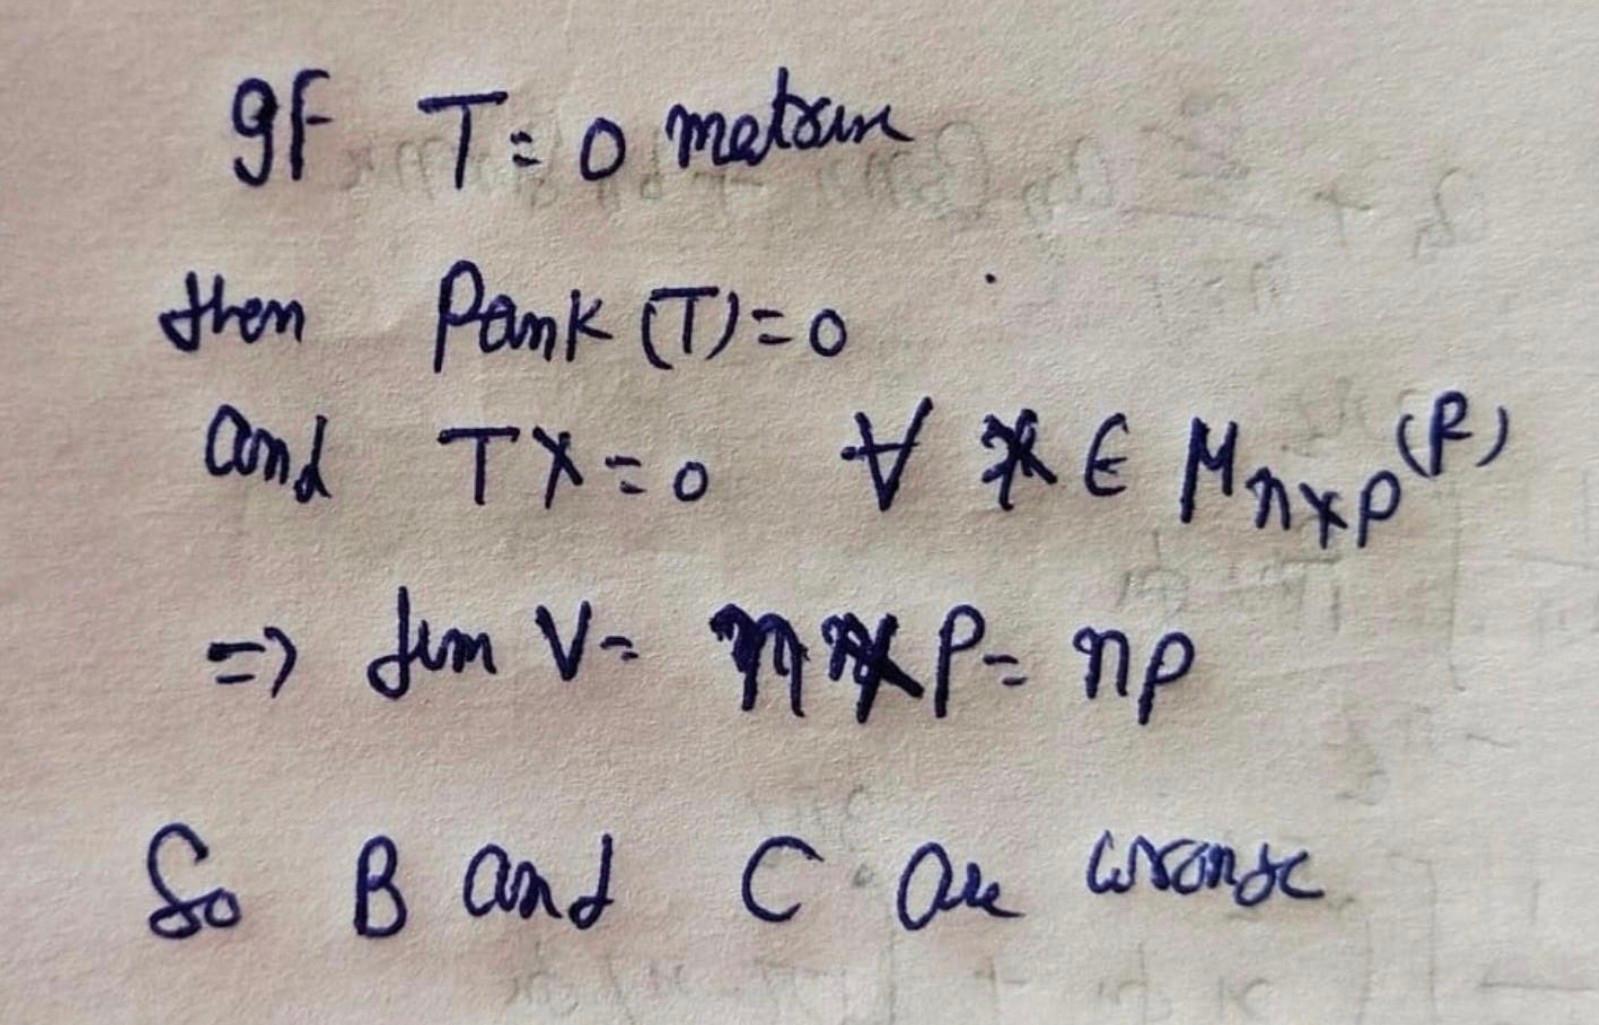 If T = 0 matrix
then Rank (T) = 0
and TX = 0 ∀ X ∈ M_{n×p}(R)
⇒ dim V = n × p = np
So B and C are wrong